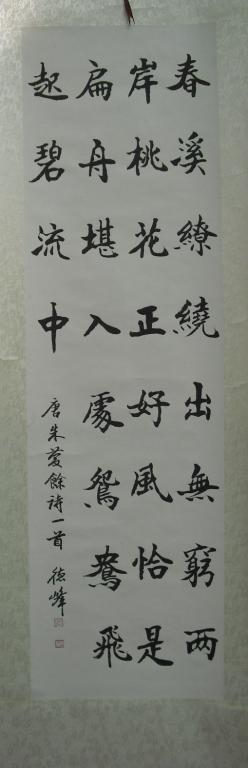 春溪繚繞出無窮两
岸桃花正好風恰是
扁舟堪入處鴛鴦飛
起碧流中
唐朱慶餘詩一首 德峰